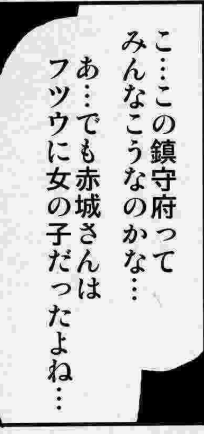 こ…この鎮守府って
みんなこうなのかな…
あ…でも赤城さんは
フツウに女の子だったよね…